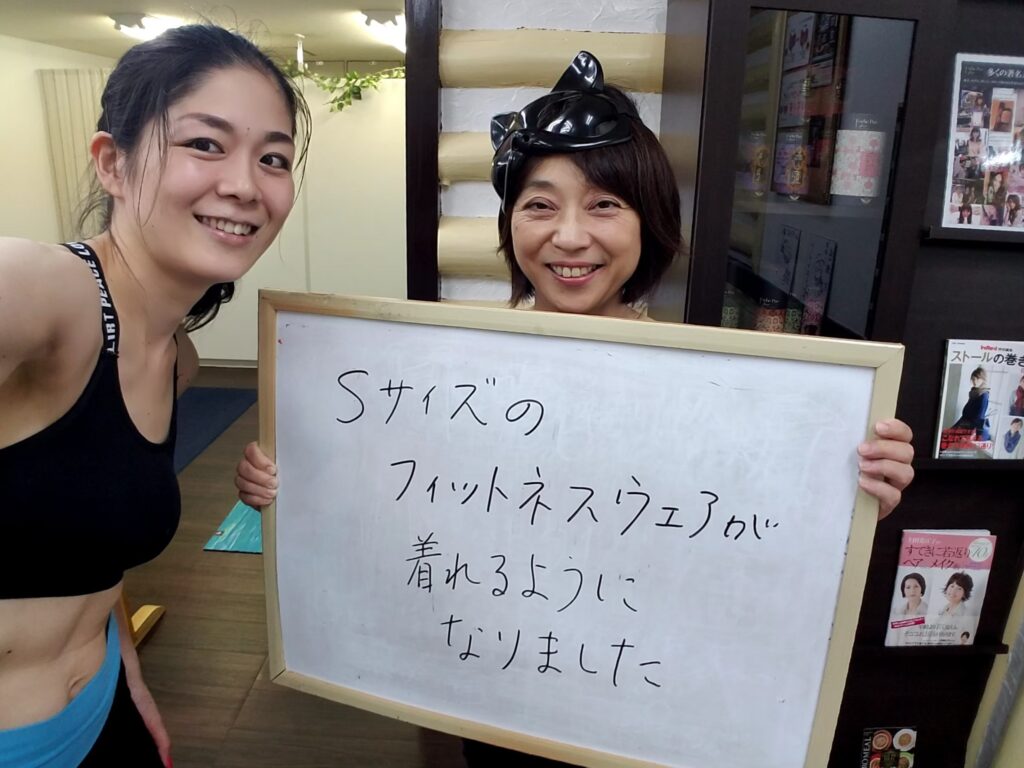 Sサイズの
フィットネスウェアが
着れるように
なりました
多くの著名
ストールの巻き
すてきに若返り
ヘア メイク